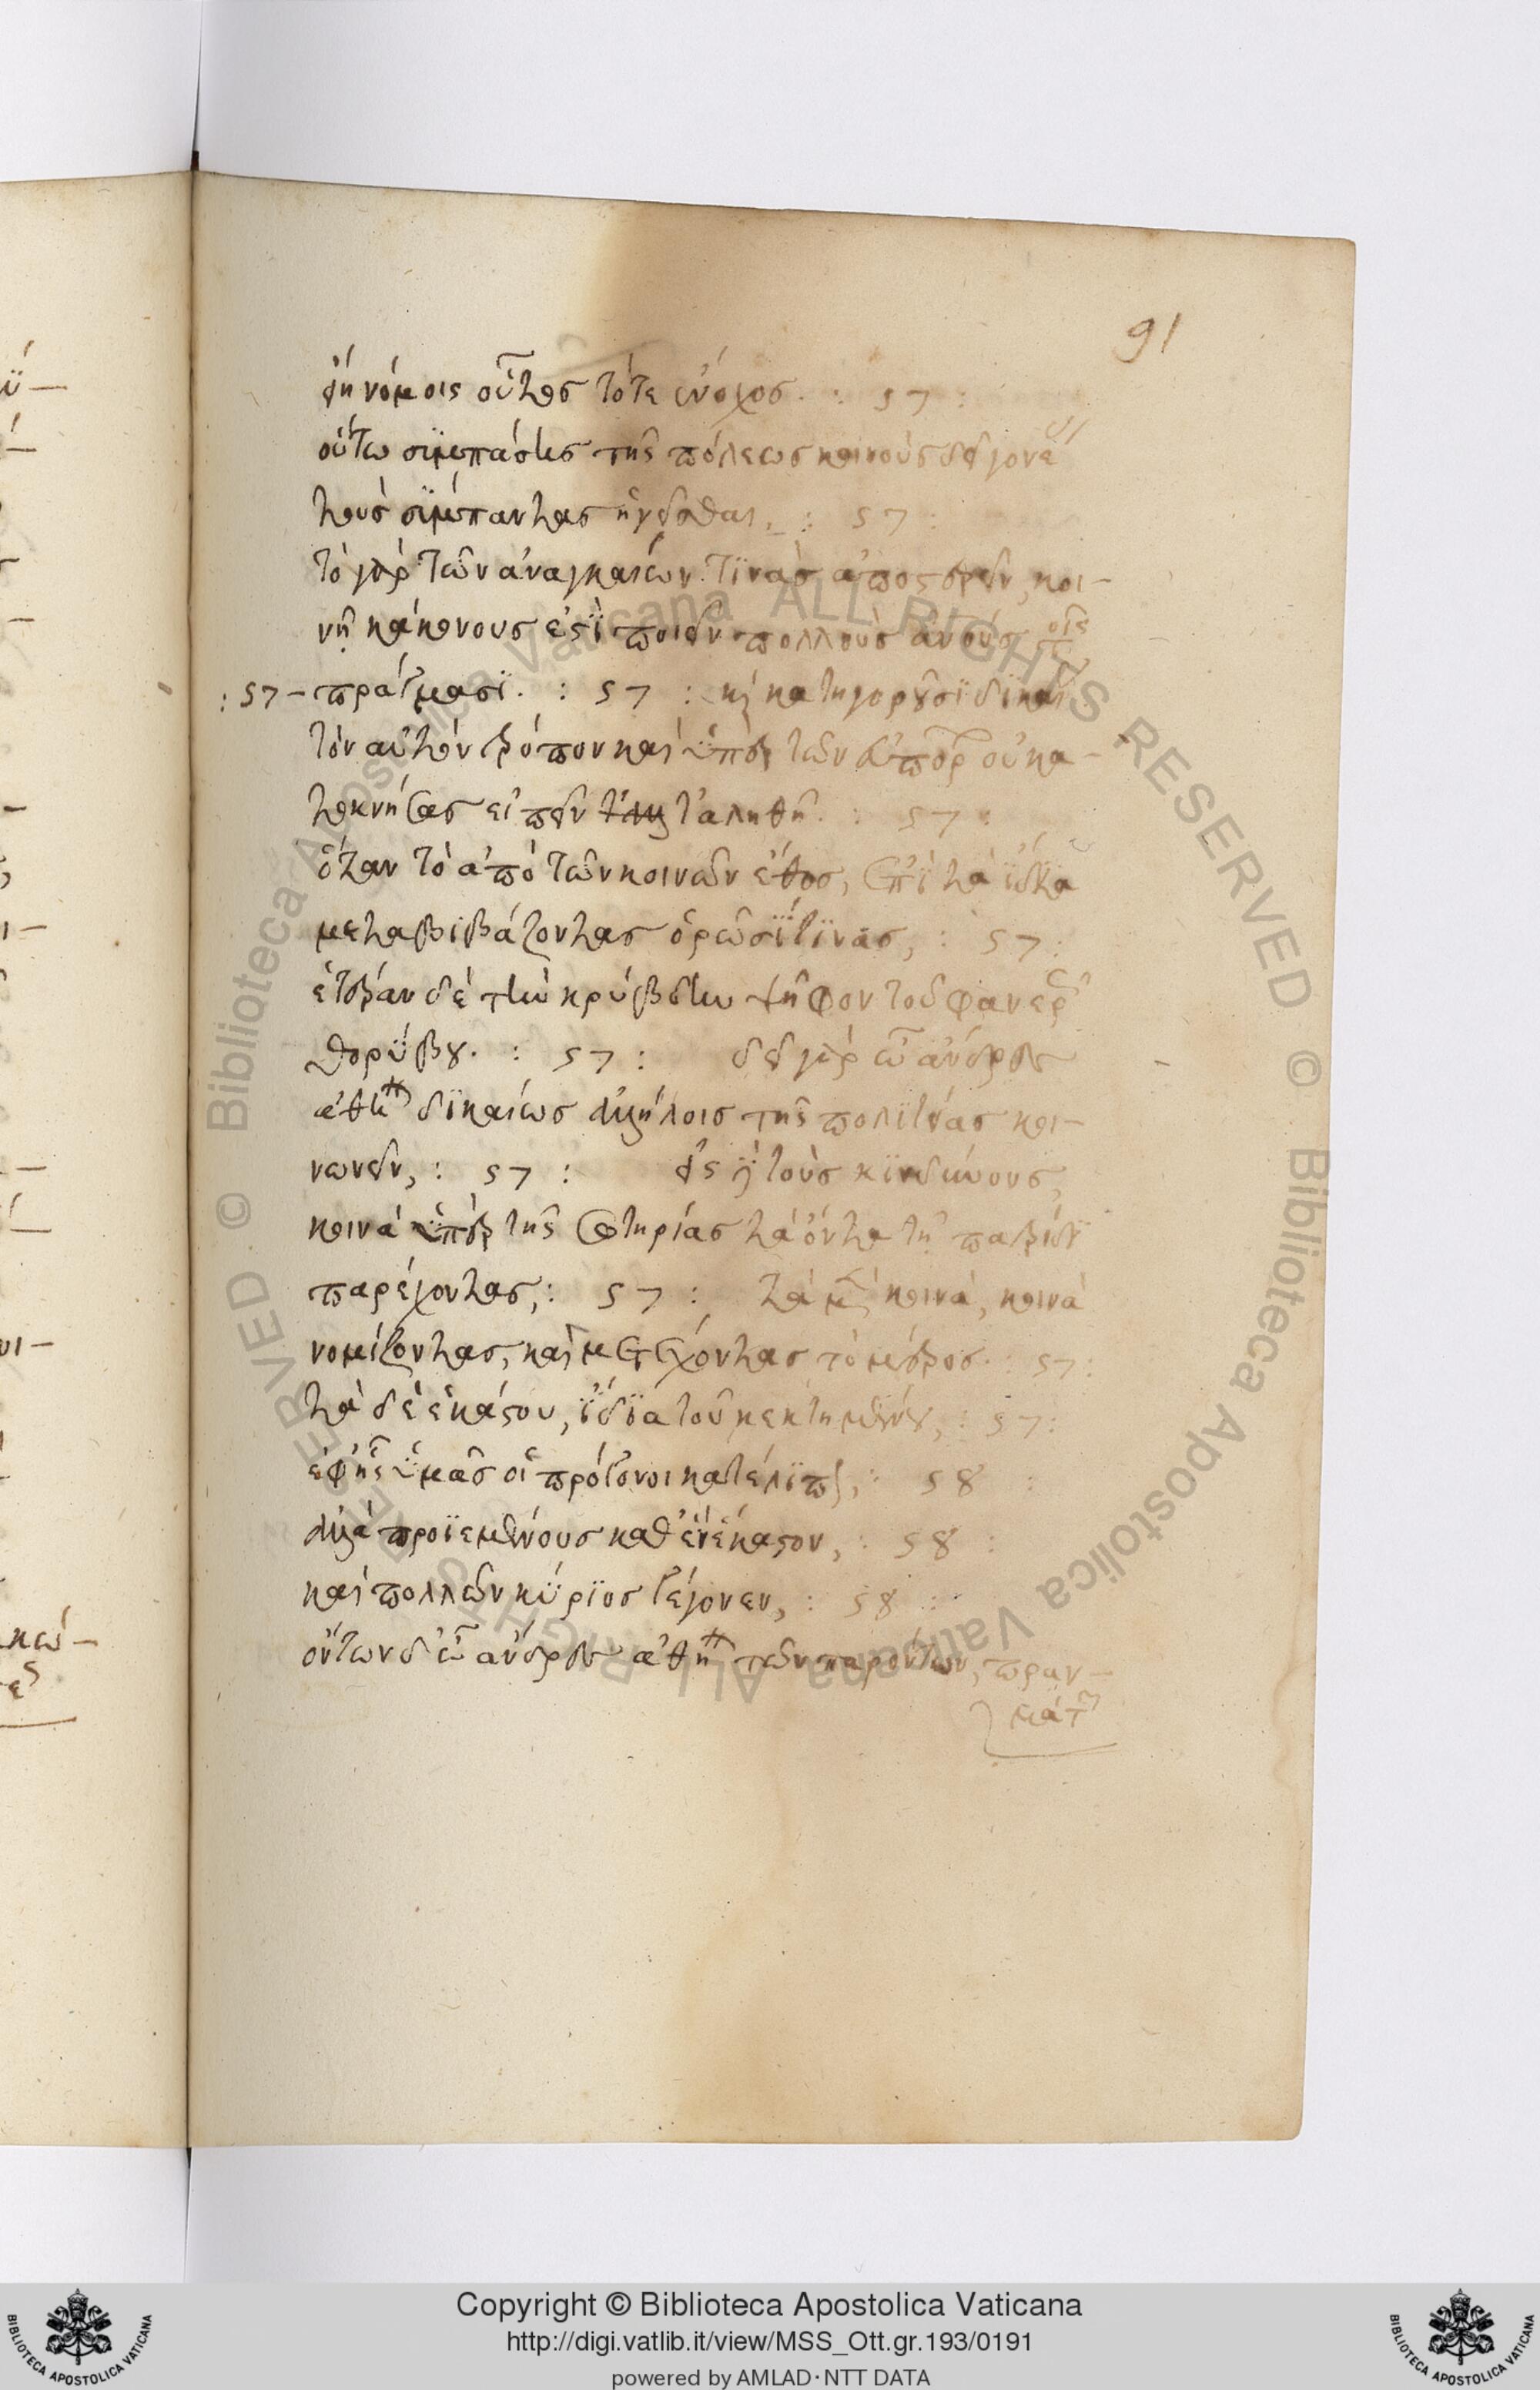 91
ἔτι νόμοις οὗτος τότε ἔνοχος. : 57 :
οὕτω συμπάσης τῆς πόλεως κοινοὺς δεῖ γονέ
τοὺς σύμπαντας ἡγεῖσθαι, : 57 :
τὸ γὰρ τῶν ἀναγκαίων τινὰς ἀποστερεῖν, κοι-
νῇ κακόνους ἐστὶ ποιεῖν πολλοὺς ἀνούς
: 57 - πράγμασι. : 57 : κατηγοροῦσι
τὸν αὐτὸν τρόπον καὶ ὑπὲρ τῶν ἀπόρ οὐκ α-
ποκνήσας εἰπεῖν τἀληθῆ. : 57 :
ὅταν τὸ ἀπὸ τῶν κοινῶν ἔθος, ἐπὶ τὰ ἴδια
μεταβιβάζοντας ὁρῶσί τινας, : 57 :
ἑτέραν δὲ τὴν κρύβδην ψῆφον τοῦ φανερ
θορύβου. : 57 : δεῖ γὰρ ὦ ἄνδρες
ἀθην δικαίως ἀλλήλοις τῆς πολιτείας κοι-
νωνεῖν, : 57 : εἰς τοὺς κινδύνους,
κοινὰ ὑπὲρ τῆς σωτηρίας τὰ ὄντα τῇ πατρίδι
παρέχοντας, : 57 : τὰ μὲν κοινὰ, κοινὰ
νομίζοντας, καὶ μετέχοντας τὸ μέρος. : 57 :
τὰ δὲ ἑκάστου, ἴδια τοῦ κεκτημένου, : 57 :
ἐφ' ἧς ὑμᾶς οἱ πρόγονοι κατέλιπον, : 58 :
ἀλλὰ προϊεμένους καθ' ἕν ἕκαστον, : 58 :
καὶ πολλῶν κύριος γέγονεν, : 58 :
ὄντων δ' ὦ ἄνδρες ἀθην τῶν παρόντων, πραγ-
μάτων
Copyright © Biblioteca Apostolica Vaticana
http://digi.vatlib.it/view/MSS_Ott.gr.193/0191
powered by AMLAD·NTT DATA